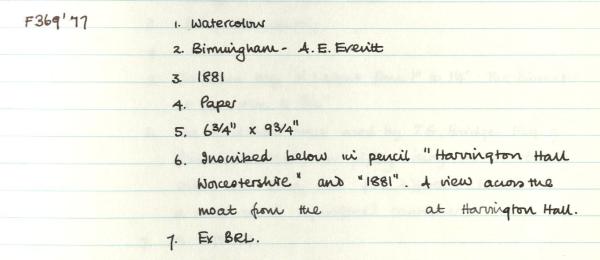 F369'77
1. Watercolour
2. Birmingham - A.E. Everitt
3. 1881
4. Paper
5. 6 3/4" x 9 3/4"
6. Inscribed below in pencil "Harvington Hall
Worcestershire" and "1881". A view across the
moat from the at Harvington Hall.
7. Ex BRL.